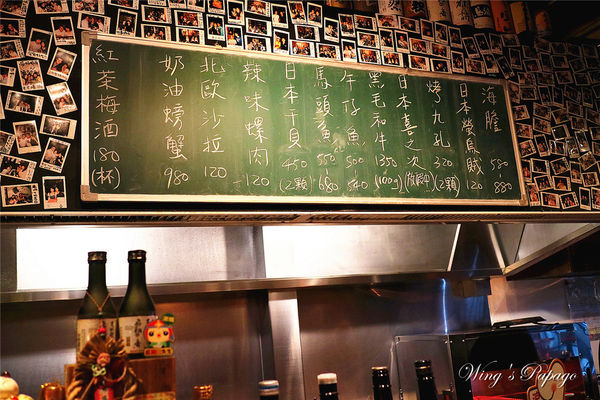 海膽 580-880
日本螢烏賊 120
烤九孔 320 (2顆)
日本喜之次
黑毛和牛 1350 (100g)
午仔魚 350-540
馬頭魚 550-680
日本干貝 450 (2顆)
辣味螺肉 120
北歐沙拉 120
奶油螃蟹 980
紅茶梅酒 180 (杯)
Wing's Papago